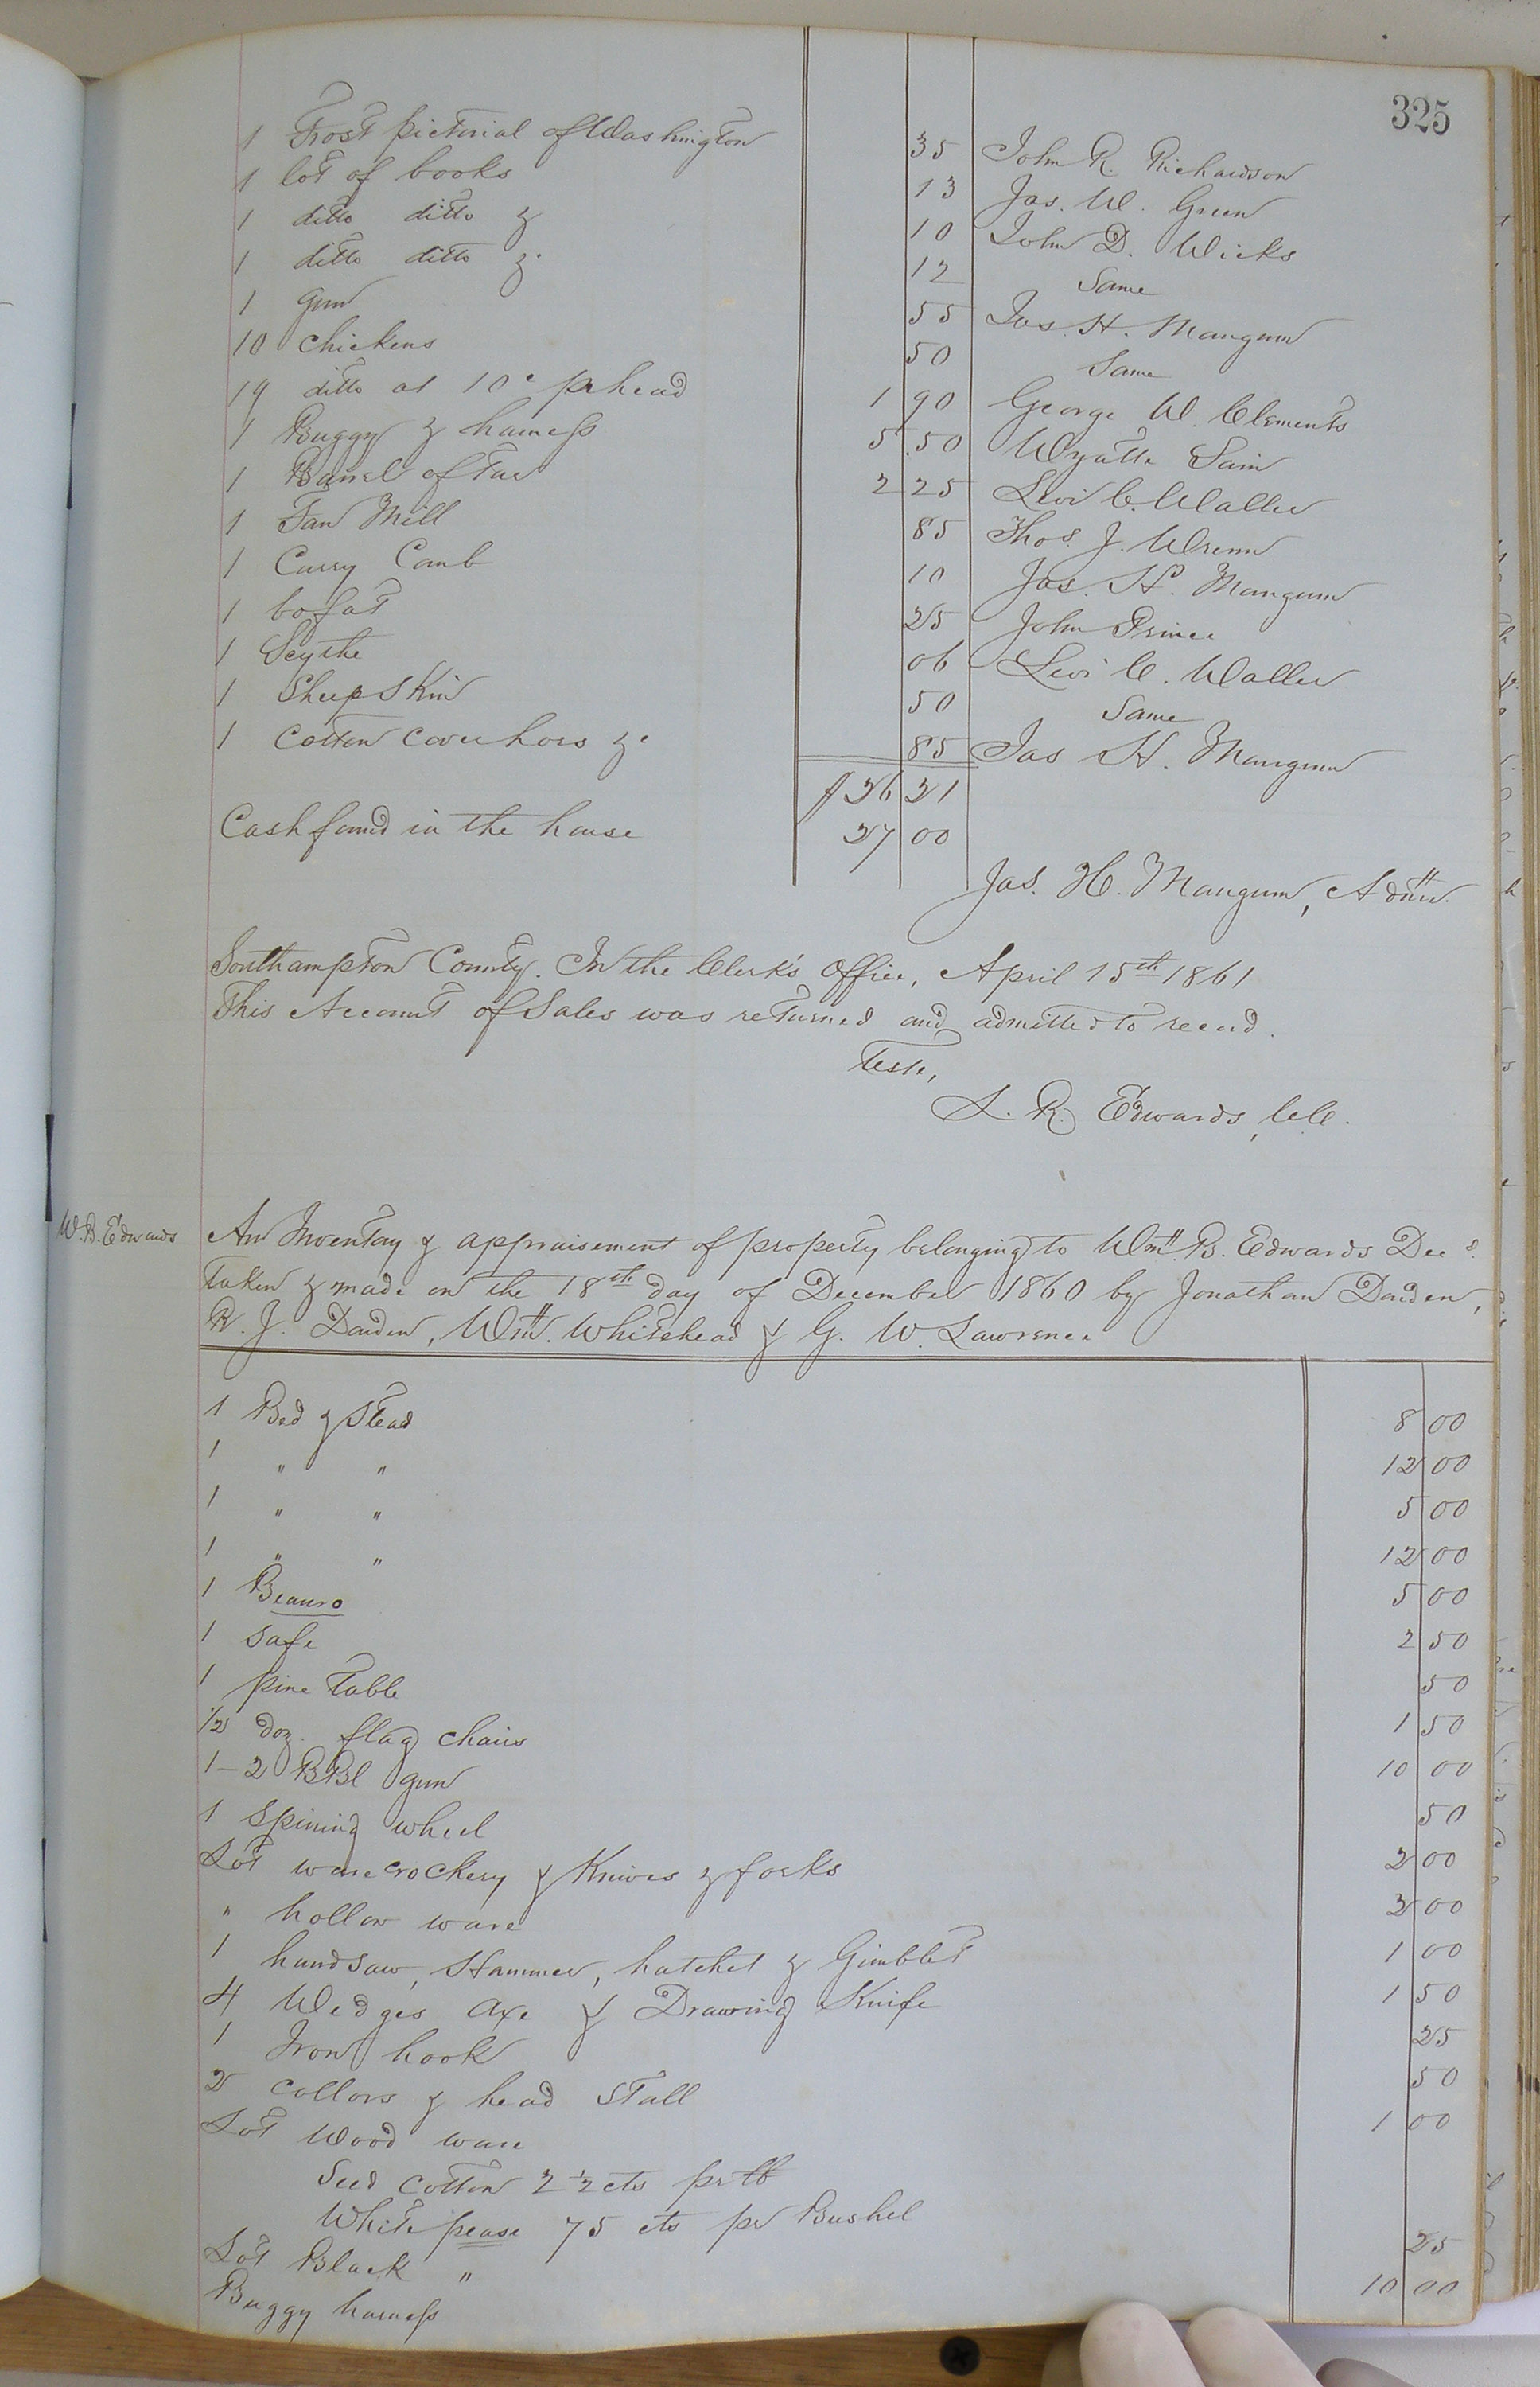 325
1 Frost pictorial of Washington 35 John R. Richardson
1 lot of books 13 Jas. W. Green
1 ditto ditto & 10 John D. Wicks
1 ditto ditto &. 12 Same
1 gun 55 Jas. H. Mangum
10 chickens 50 Same
19 ditto at 10c pr head 1 90 George W. Clements
1 Buggy & harness 5 50 Wyatte Sain
1 Barrel of Tar 2 25 Levi C. Waller
1 Fan Mill 85 Thos. J. Wrenn
1 Curry Comb 10 Jas. H. Mangum
1 bofat 25 John Prince
1 Scythe 06 Levi C. Waller
1 Sheep Skin 50 Same
1 Cotton cover hors &c 85 Jas H. Mangum
26 21
Cash found in the house 27 00
Jas. H. Mangum, Admr.
Southampton County. In the Clerk's Office, April 15th 1861
This Account of Sales was returned and admitted to record.
Teste,
L. R. Edwards, C.C.
W. B. Edwards
An Inventory & appraisement of property belonging to Wm. B. Edwards Decd.
Taken & made on the 18th day of December 1860 by Jonathan Darden,
R. J. Darden, Wm. Whitehead & G. W. Lawrence
1 Bed & Stead 8 00
1 " " 12 00
1 " " 5 00
1 " " 12 00
1 Beauro 5 00
1 safe 2 50
1 pine Table 50
1/2 doz. flag chairs 1 50
1-2 BBl gun 10 00
1 Spining wheel 50
Lot ware crockery & Knives & forks 2 00
" hollow ware 2 00
1 handsaw, Hammer, hatchet & Gimblet 1 00
4 Wedges Axe & Drawing Knife 1 50
1 Iron hook 25
2 collars & head Stall 50
Lot Wood ware 1 00
Seed cotton 2 1/2 cts pr lb
White pease 75 cts pr Bushel
Lot Black " 25
Buggy harness 10 00